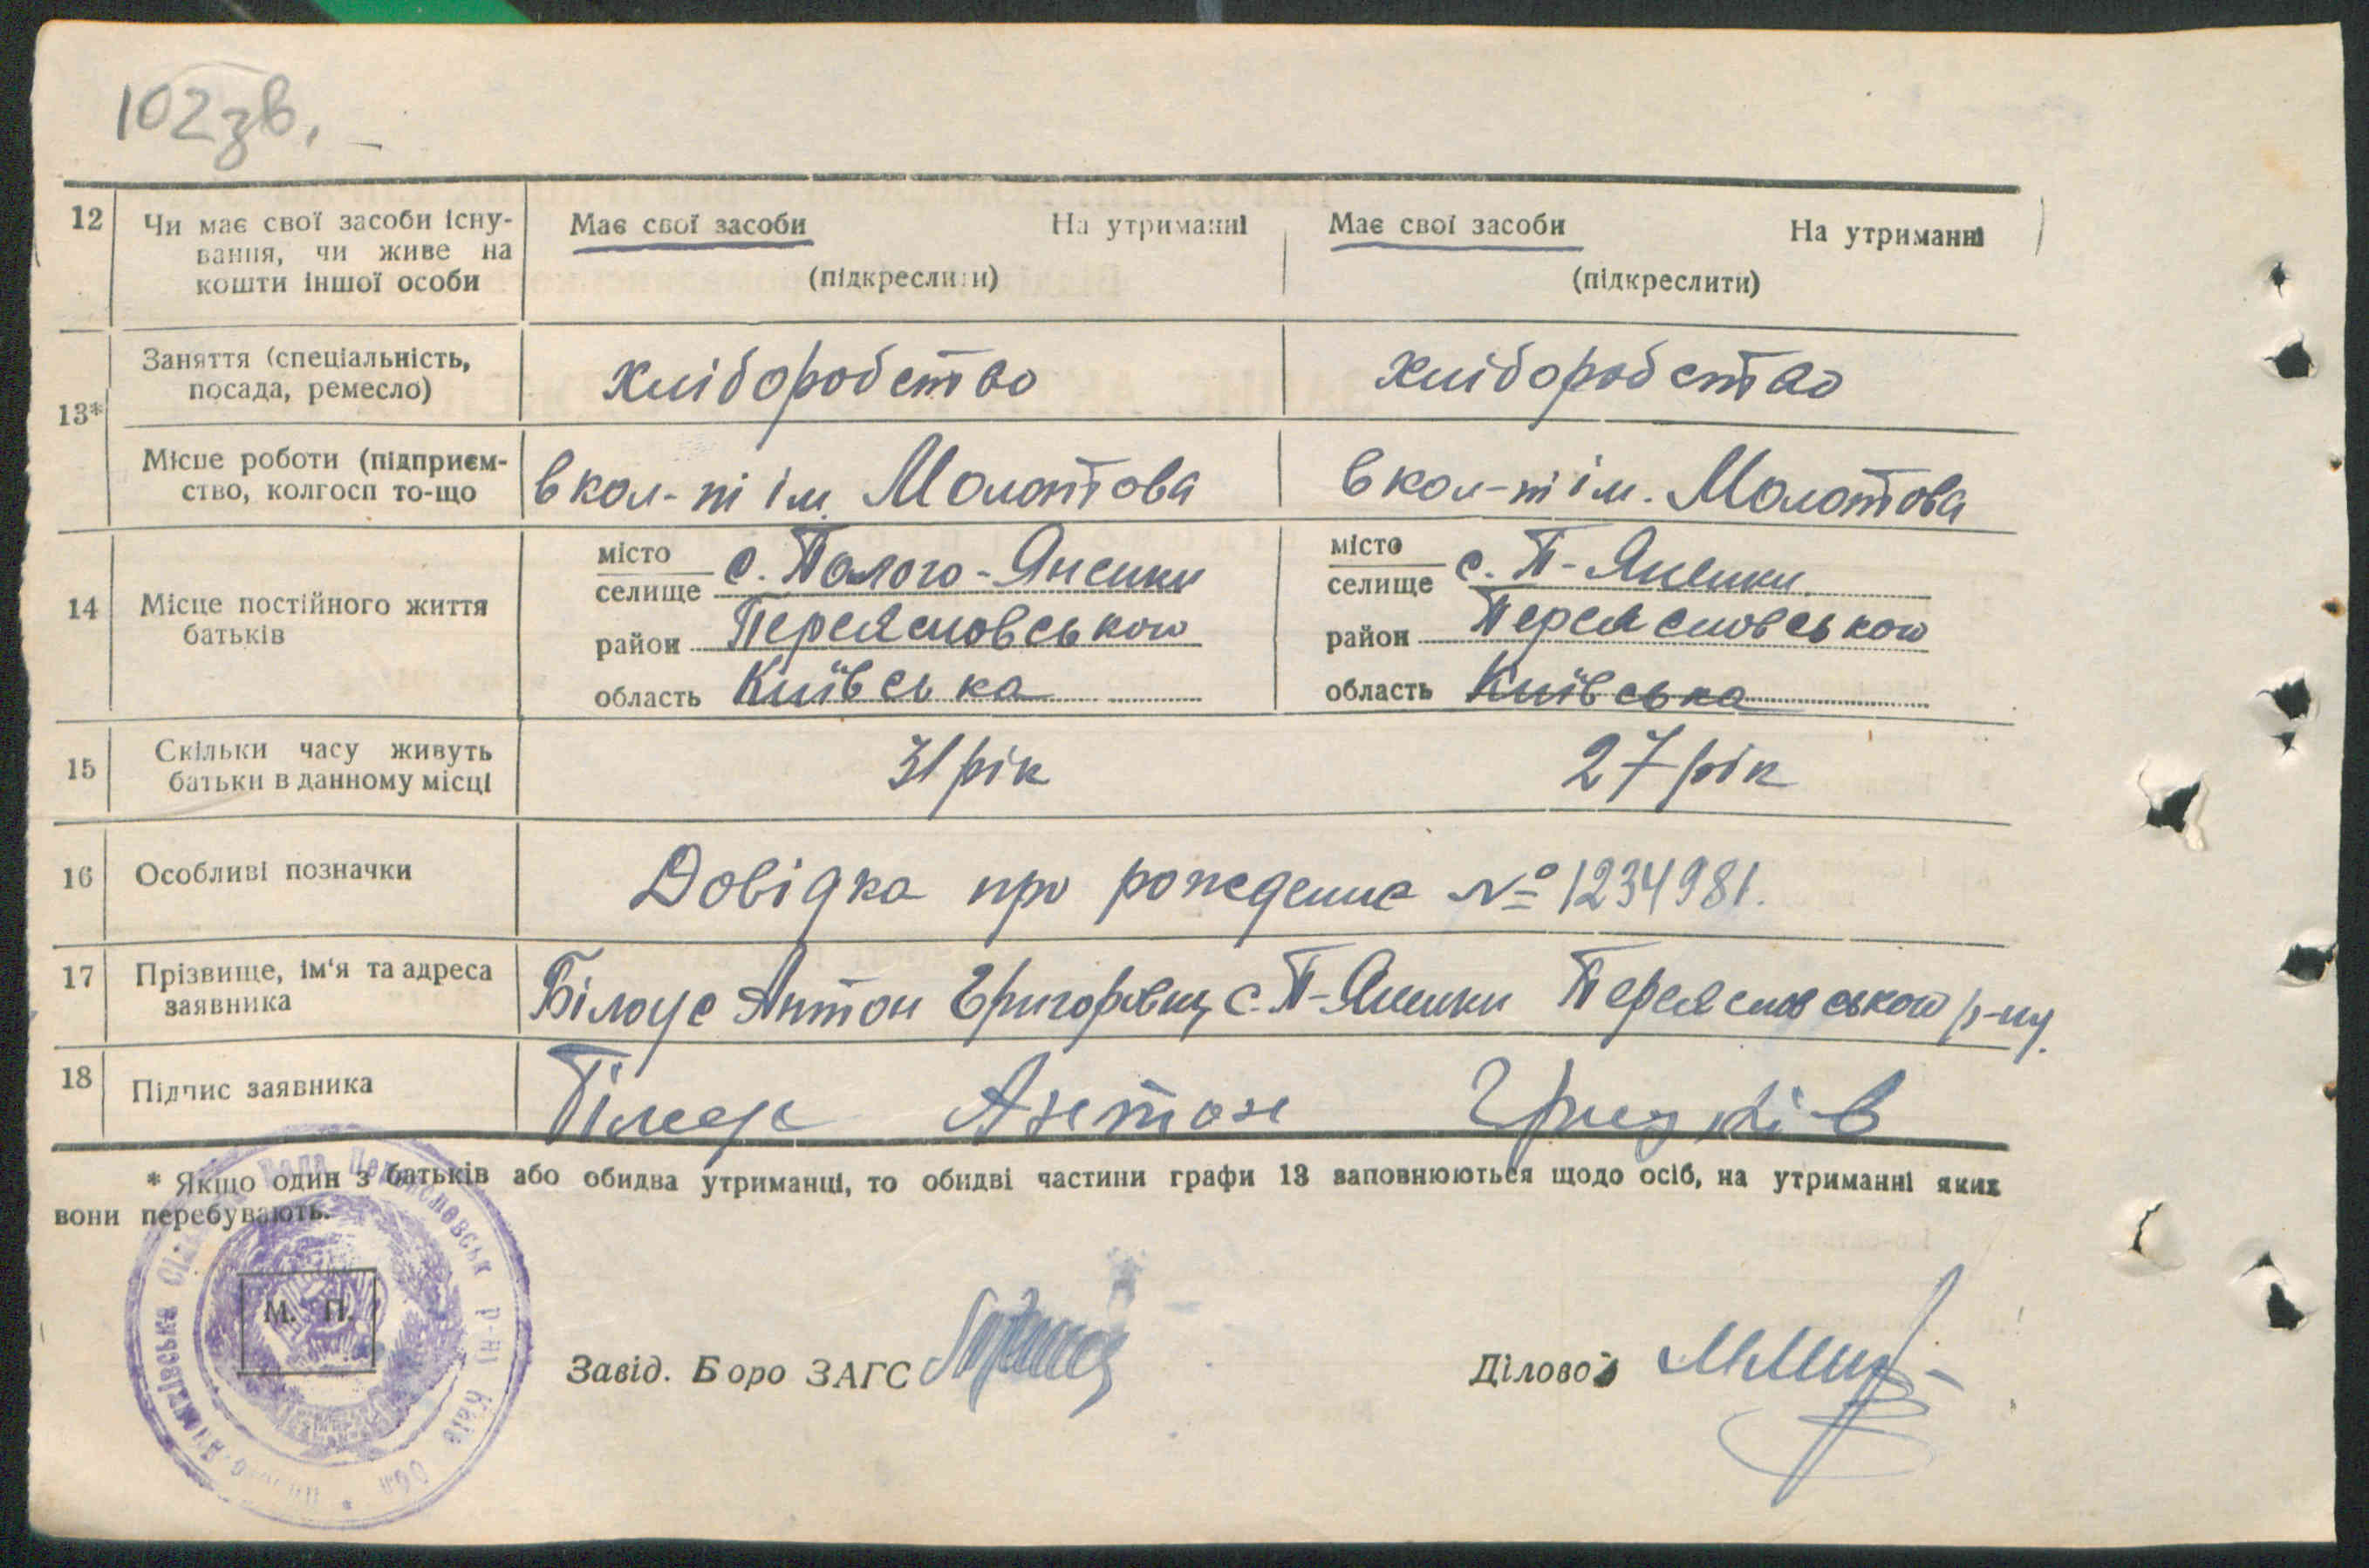 102зв.
12 Чи має свої засоби існу- Має свої засоби На утриманні Має свої засоби На утриманні
вання, чи живе на
кошти іншої особи (підкреслити) (підкреслити)
13* Заняття (спеціальність, хліборобство хліборобство
посада, ремесло)
Місце роботи (підприєм- в кол-пі ім. Молотова в кол-пі ім. Молотова
ство, колгосп то-що
14 Місце постійного життя батьків
місто селище с. Полого-Яненки місто селище с. П-Яненки
район Переясловського район Переясловського
область Київська область Київська
15 Скільки часу живуть 31 рік 27 рік
батьки в данному місці
16 Особливі позначки Довідка про рождение № 1234981.
17 Прізвище, ім'я та адреса Білоус Антон Григорович, с. П-Яненки Переясловського р-ну.
заявника
18 Підпис заявника Білоус Антон
* Якщо один з батьків або обидва утриманці, то обидві частини графи 13 заповнюються щодо осіб, на утриманні яких
вони перебувають.
М. П.
Завід. Боро ЗАГС Діловод